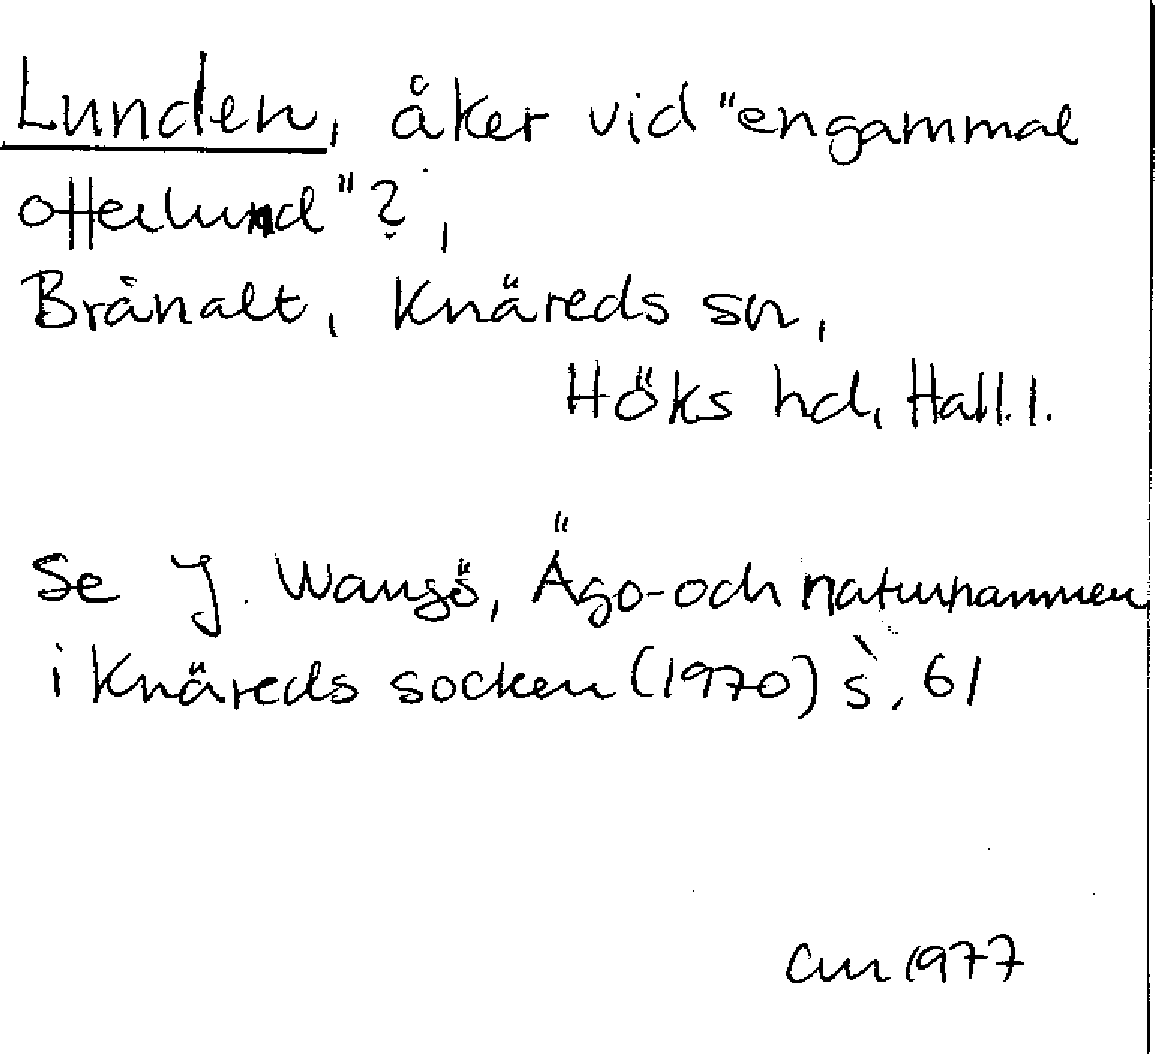 Lunden, åker vid "en gammal
offerlund"?,
Brånalt, Knäreds sn,
Höks hd, Hall. l.
Se J. Wangö, Ägo- och naturnamnen
i Knäreds socken (1970) s. 61
CM 1977